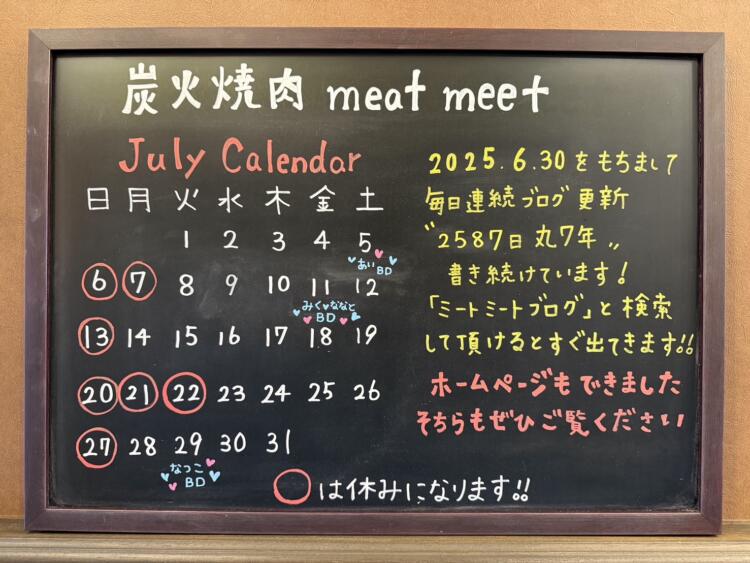 炭火焼肉 meat meet
July Calendar
日 月 火 水 木 金 土
1 2 3 4 5
あい BD
6 7 8 9 10 11 12
みく ななと
BD
13 14 15 16 17 18 19
20 21 22 23 24 25 26
27 28 29 30 31
なつこ
BD
は休みになります!!
2025.6.30をもちまして
毎日連続ブログ更新
〝2587日 丸7年〟
書き続けています!
「ミートミートブログ」と検索
して頂けるとすぐ出てきます!!
ホームページもできました
そちらもぜひご覧ください